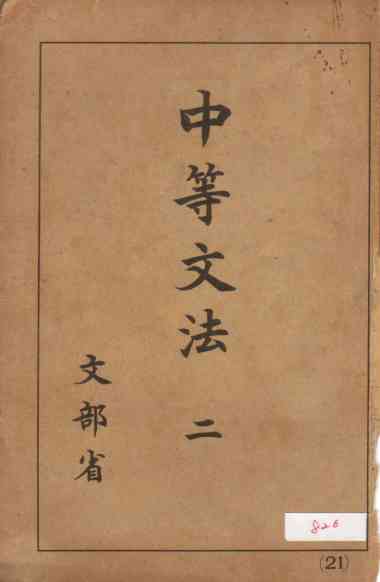 中等文法 二
文部省
826
(21)